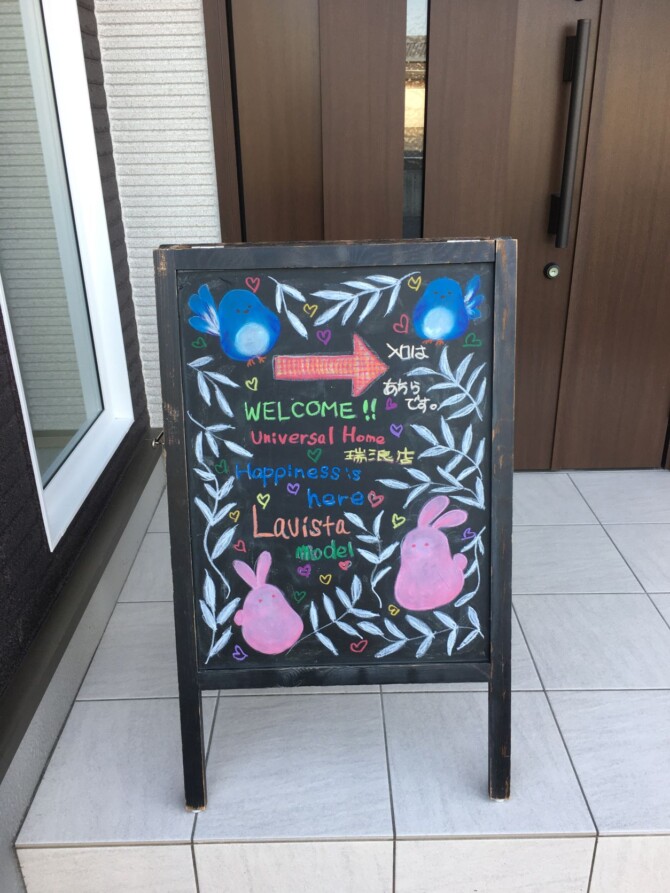 入口は
あちら
です。
WELCOME!!
Universal Home
瑞浪店
Happiness is
here
Lavista
model